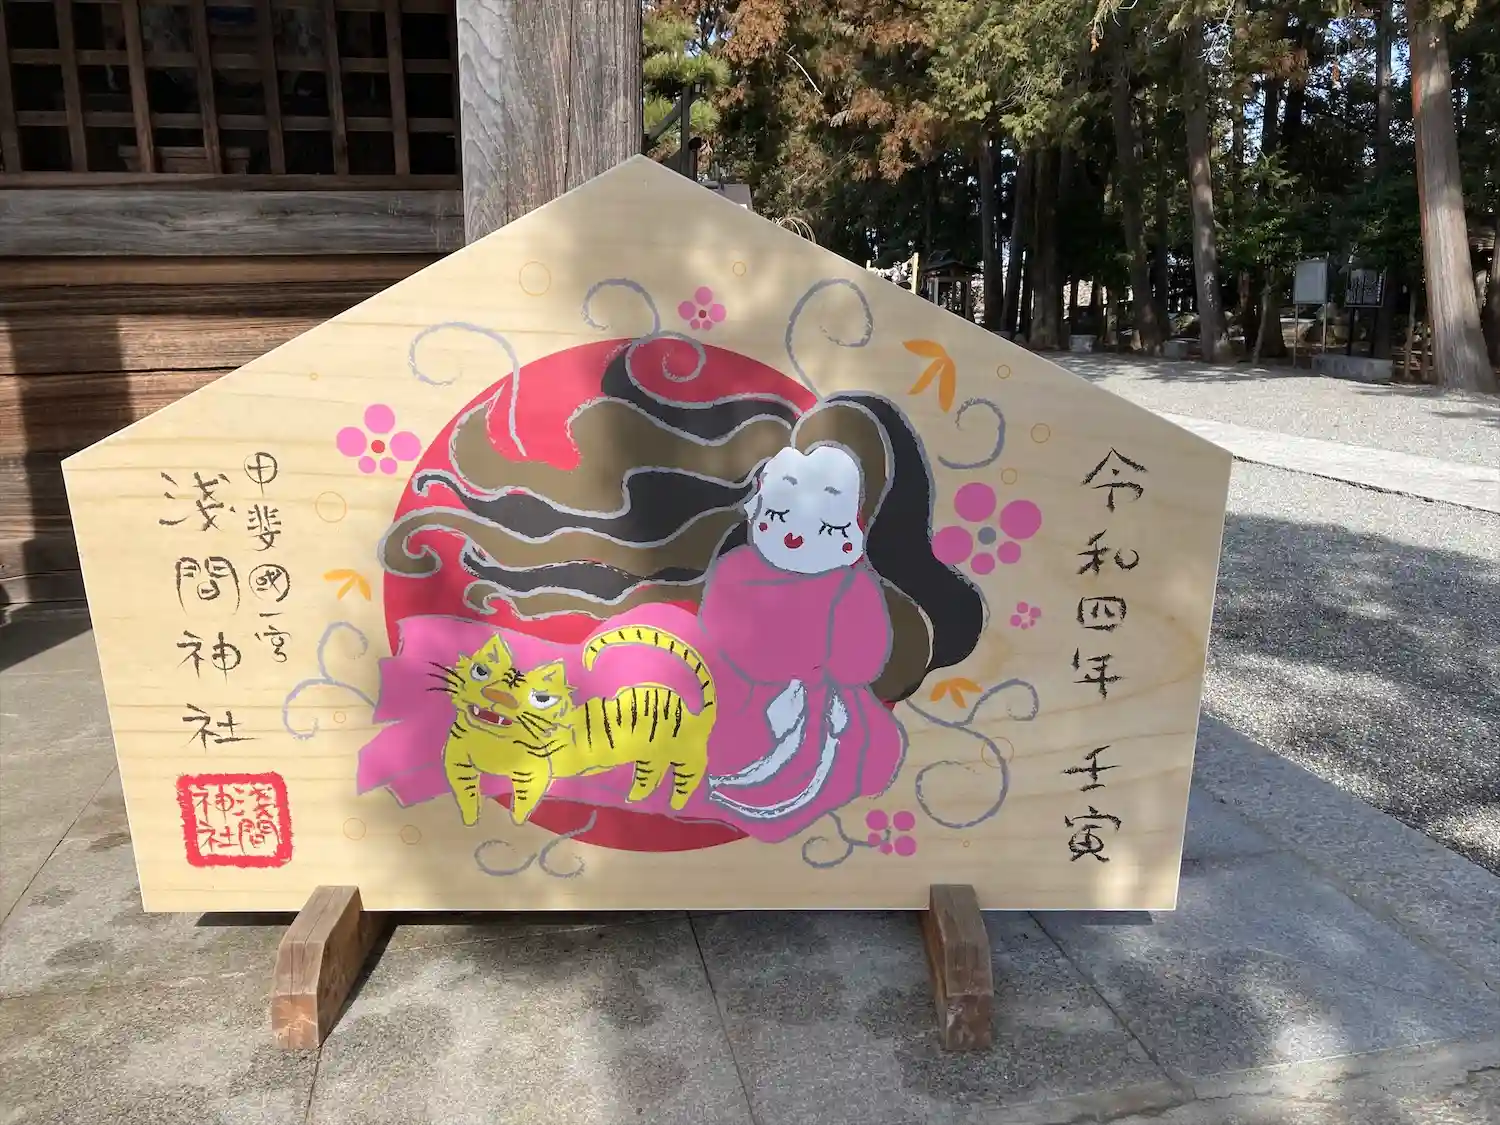 令和四年 壬寅
甲斐國一宮
浅間神社
浅間
神社